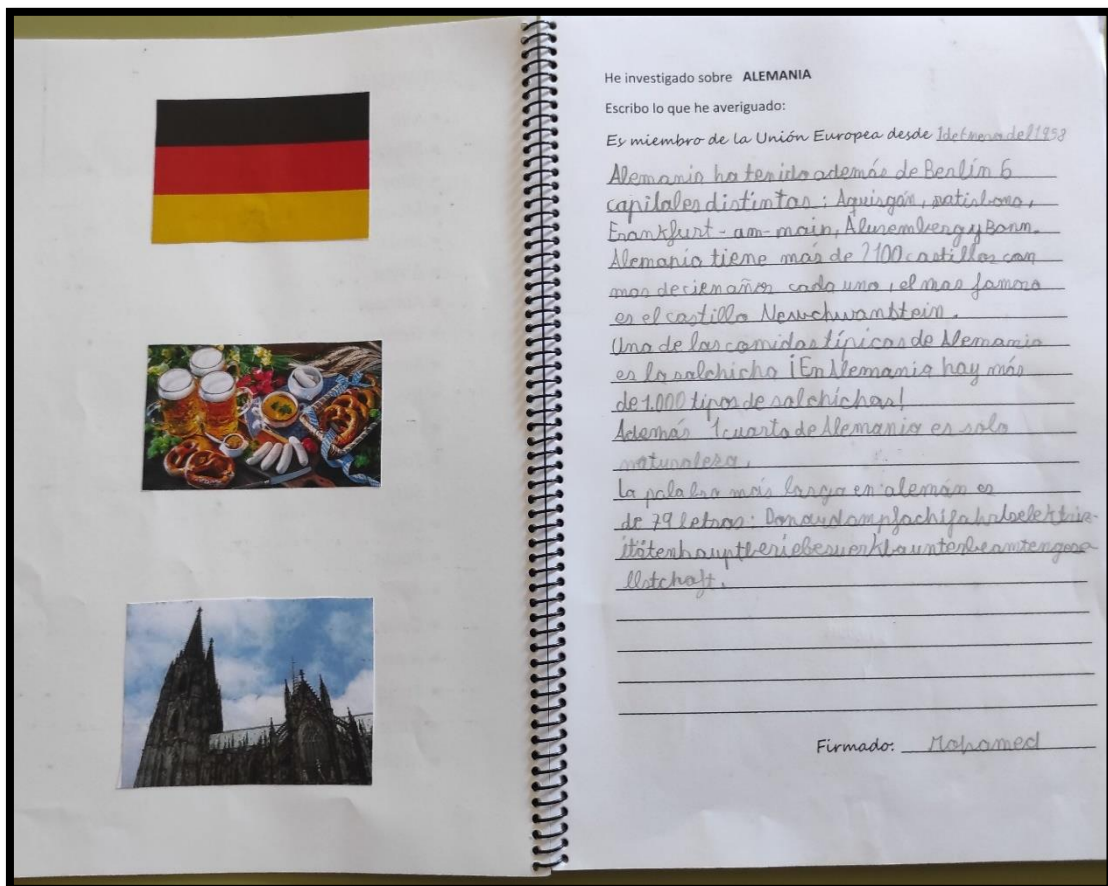 He investigado sobre ALEMANIA
Escribo lo que he averiguado:
Es miembro de la Unión Europea desde 1 de Enero del 1958
Alemania ha tenido además de Berlín 6
capitales distintas: Aquisgán, ratisbona,
Frankfurt-am-main, Nuremberg y Bonn.
Alemania tiene más de 2100 castillos con
mas de cien años cada uno, el mas famoso
es el castillo Neuchwanstein.
Una de las comidas típicas de Alemania
es la salchicha ¡En Alemania hay más
de 1.000 tipos de salchichas!
Además 1 cuarto de Alemania es solo
naturaleza.
La palabra más larga en alemán es
de 79 letras:
Firmado: Mohamed